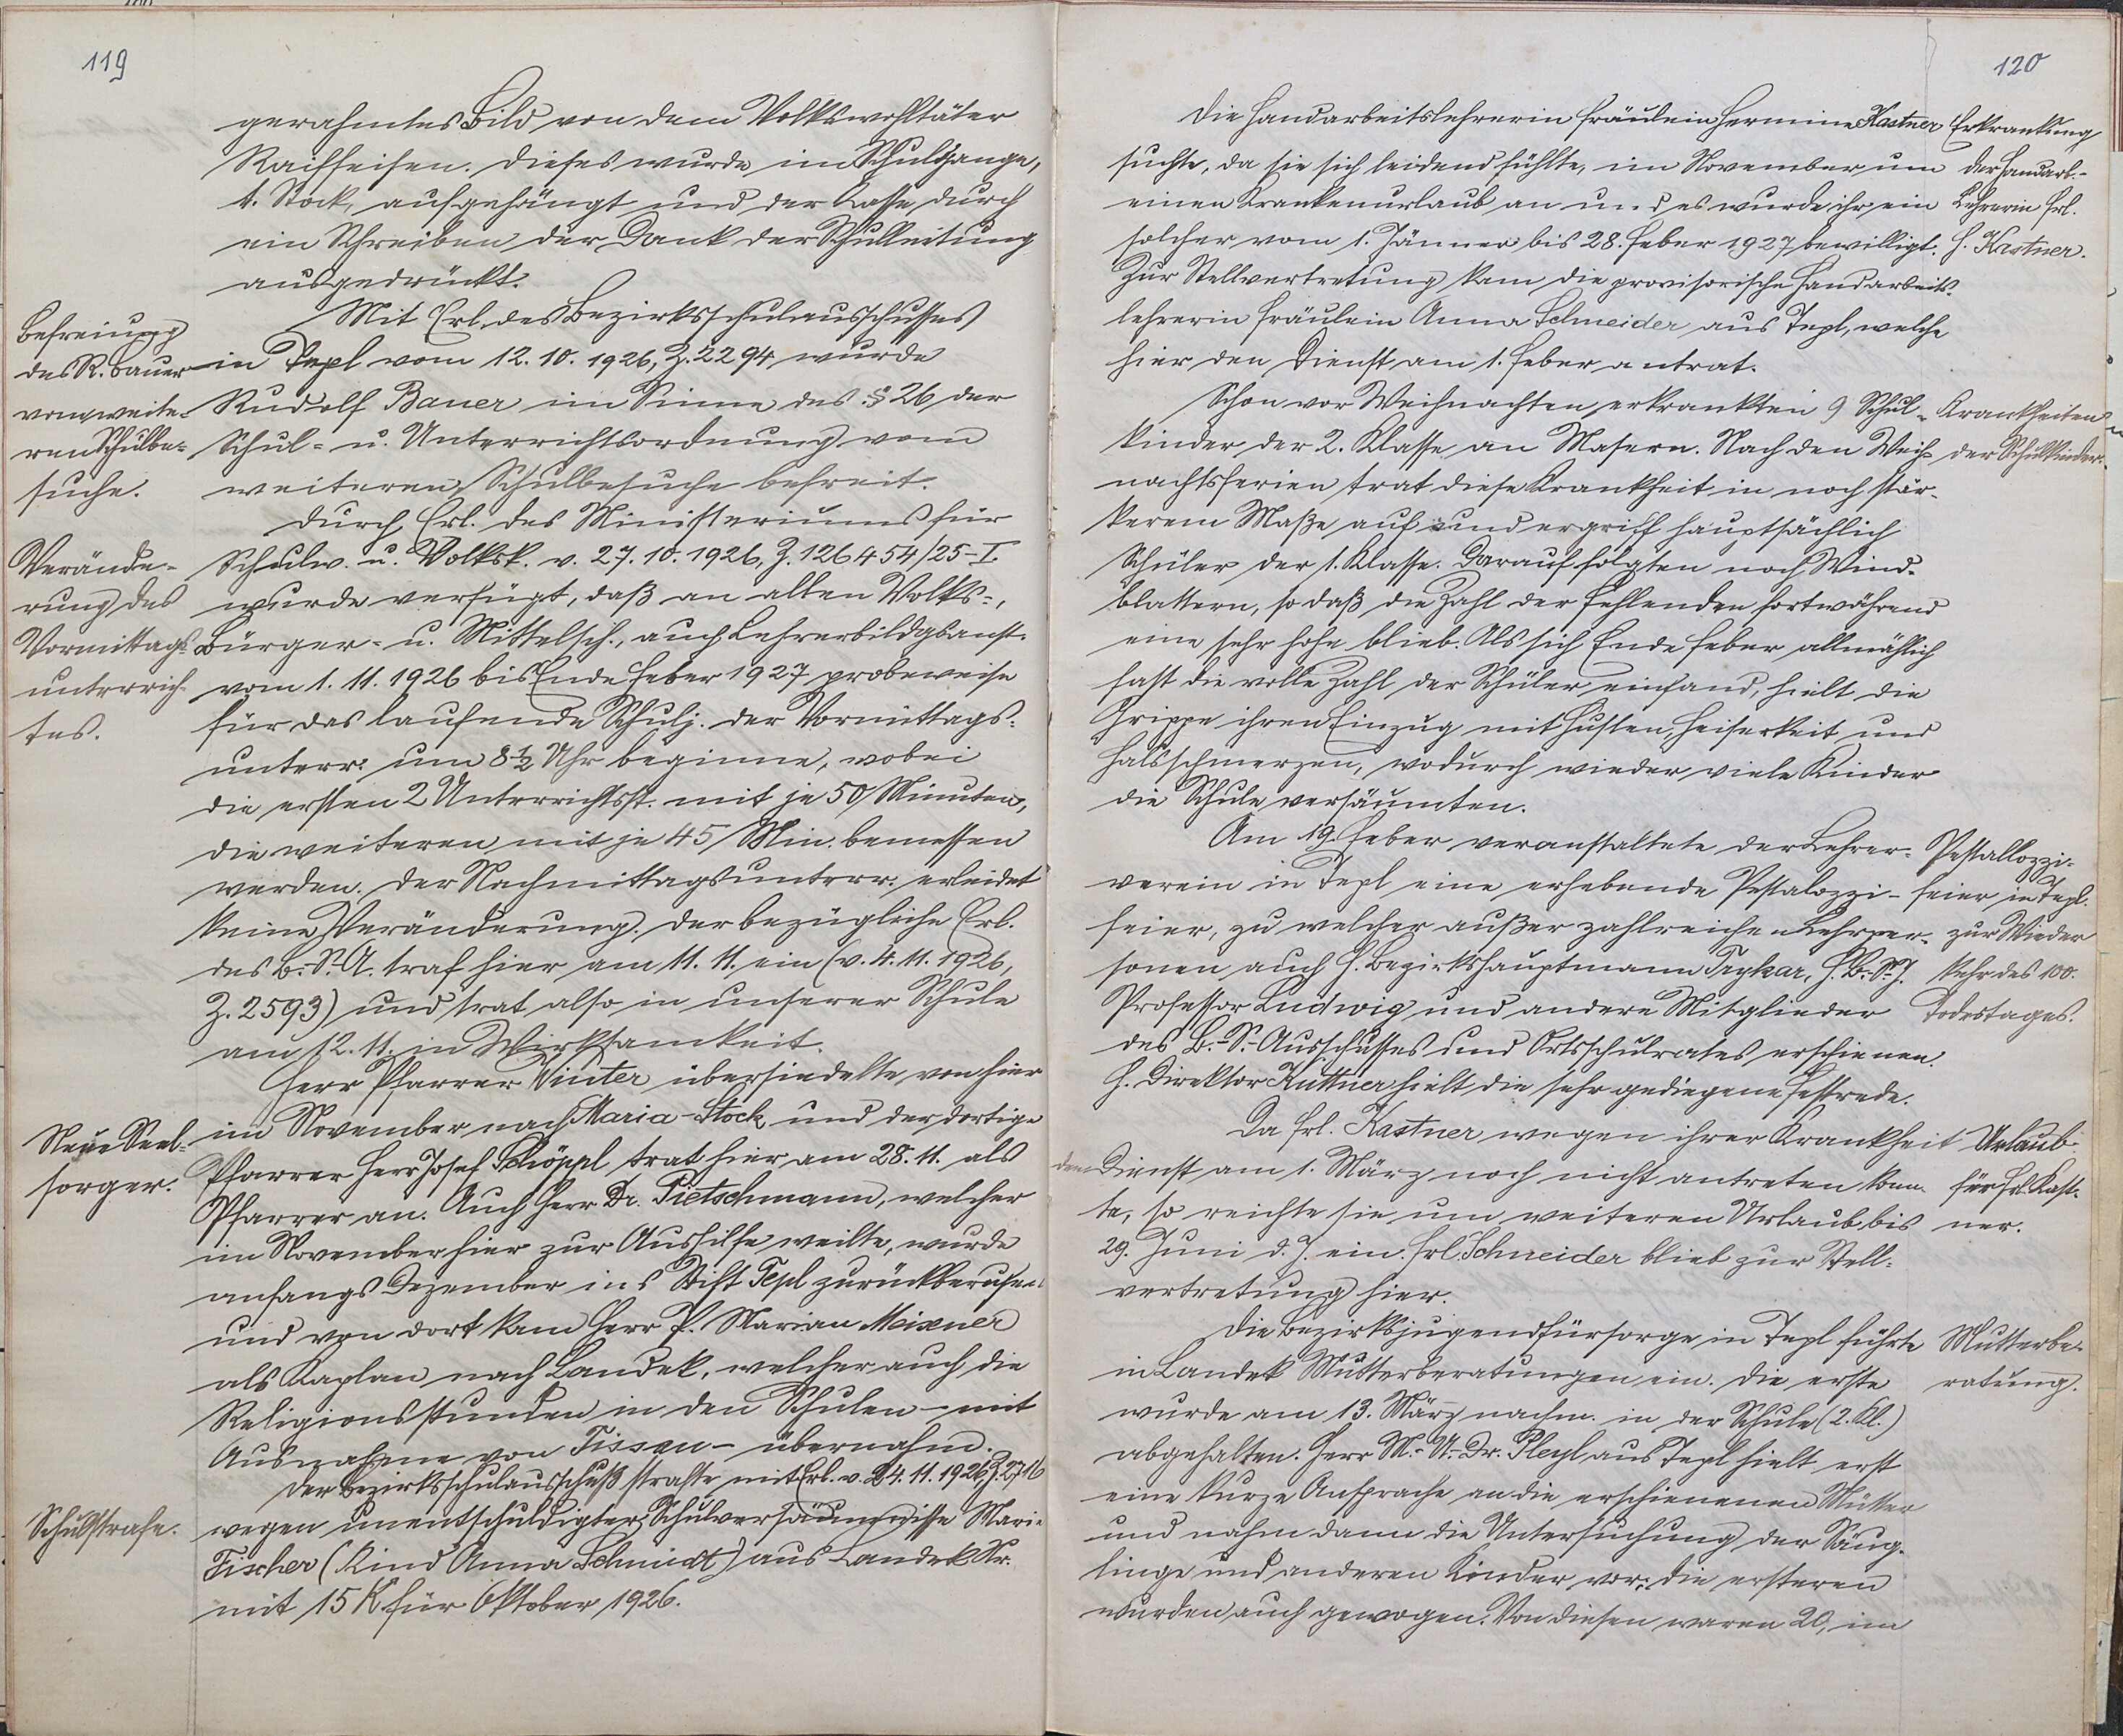 119
gerahmtes Bild von dem Volkswohltäter
Raiffeisen. Dieses wurde im Schulgange,
1. Stock, aufgehängt und der Kasse durch
ein Schreiben der Dank der Schulleitung
ausgedrückt.
Befreiung
des R. Bauer
vom weite-
ren Schulbe-
suche.
Mit Erl. des Bezirksschulausschusses
in Tepl vom 12.10.1926, Z. 2294 wurde
Rudolf Bauer im Sinne des § 26 der
Schul- u. Unterrichtsordnung vom
weiteren Schulbesuche befreit.
Verände-
rung des
Vormittags-
unterrich-
tes.
Durch Erl. des Ministeriums für
Schulw. u. Volksk. v. 27.10.1926, Z. 126454/25-I
wurde verfügt, daß an allen Volks-,
Bürger- u. Mittelsch., auch Lehrerbildgsanst.
vom 1.11.1926 bis Ende Feber 1927 probeweise
für das laufende Schulj. der Vormittags-
unterr. um 8½ Uhr beginne, wobei
die ersten 2 Unterrichtsst. mit je 50 Minuten,
die weiteren mit je 45 Min. bemessen
werden. Der Nachmittagsunterr. erleidet
keine Veränderung. Der bezügliche Erl.
des B.-S.-A. traf hier am 11.11. ein (v. 4.11.1926,
Z. 2593) und trat also in unserer Schule
am 12.11. in Wirksamkeit.
Neue Seel-
sorger.
Herr Pfarrer Winter übersiedelte von hier
im November nach Maria-Stock und der dortige
Pfarrer Herr Josef Schöppl trat hier am 28.11. als
Pfarrer an. Auch Herr Dr. Pietschmann, welcher
im November hier zur Aushilfe weilte, wurde
anfangs Dezember ins Stift Tepl zurückberufen
und von dort kam Herr P. Marian Meixner
als Kaplan nach Landek, welcher auch die
Religionsstunden in den Schulen – mit
Ausnahme von Tissau – übernahm.
Schulstrafe.
Der Bezirksschulausschuß strafte mit Erl. v. 24.11.1926, Z. 2716
wegen unentschuldigter Schulversäumnisse Marie
Fischer (Kind Anna Schmidt) aus Landek Nr.
mit 15 K für Oktober 1926.
120
Die Handarbeitslehrerin Fräulein Hermine Kastner
suchte, da sie sich leidend fühlte, im November um
einen Krankenurlaub an und es wurde ihr ein
solcher vom 1. Jänner bis 28. Feber 1927 bewilligt.
Zur Stellvertretung kam die provisorische Handarbeits-
lehrerin Fräulein Anna Schneider aus Tepl, welche
hier den Dienst am 1. Feber antrat.
Erkrankung
der Handarb.-
Lehrerin Frl.
H. Kastner.
Schon vor Weihnachten erkrankten 9 Schul-
kinder der 2. Klasse an Masern. Nach den Weih-
nachtsferien trat diese Krankheit in noch stär-
kerem Maße auf und ergriff hauptsächlich
Schüler der 1. Klasse. Darauf folgten noch Wind-
blattern, so daß die Zahl der Fehlenden fortwährend
eine sehr hohe blieb. Als sich Ende Feber allmählich
fast die volle Zahl der Schüler einfand, hielt die
Grippe ihren Einzug mit Husten, Heiserkeit und
Halsschmerzen, wodurch wieder viele Kinder
die Schule versäumten.
Krankheiten
der Schulkinder.
Am 19. Feber veranstaltete der Lehrer-
verein in Tepl eine erhebende Pestalozzi-
feier, zu welcher außer zahlreichen Lehrper-
sonen auch H. Bezirkshauptmann Trykar, H. B.-S.-I.
Professor Ludwig und andere Mitglieder
des B.-S.-Ausschusses und Ortsschulrates erschienen.
H. Direktor Kuttner hielt die sehr gediegene Festrede.
Pestallozzi-
feier in Tepl.
zur Wieder
kehr des 100.
Todestages.
Da Frl. Kastner wegen ihrer Krankheit
den Dienst am 1. März noch nicht antreten konn-
te, so reichte sie um weiteren Urlaub bis
29. Juni d. J. ein. Frl. Schneider blieb zur Stell-
vertretung hier.
Urlaub
für Frl. Kast-
ner.
Die Bezirksjugendfürsorge in Tepl führte
in Landek Mutterberatungen ein. Die erste
wurde am 13. März nachm. in der Schule (2. Kl.)
abgehalten. Herr M.-U.-Dr. Pleyl aus Tepl hielt erst
eine kurze Ansprache an die erschienenen Mütter
und nahm dann die Untersuchung der Säug-
linge und anderen Kinder vor; die ersteren
wurden auch gewogen. Von diesen waren 20, im
Mutterbe-
ratung.